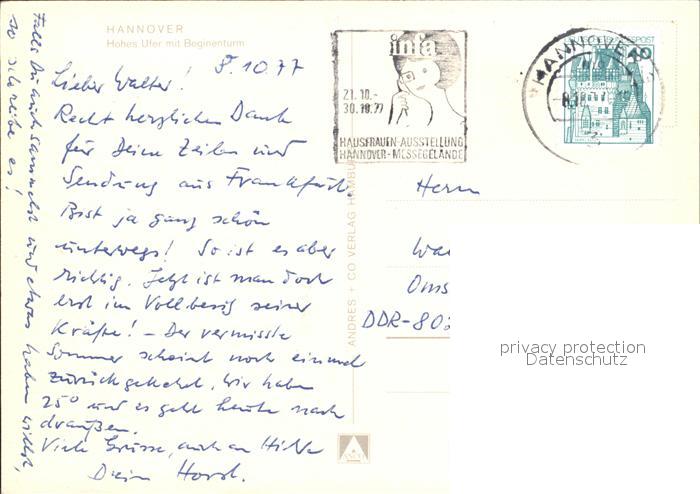 HANNOVER
Hohes Ufer mit Beginenturm
8.10.77
Lieber Walter!
Recht herzlichen Dank
für Deine Zeilen und
Sendung aus Frankfurt.
Bist ja ganz schön
unterwegs! So ist es aber
richtig. Jetzt ist man doch
erst im Vollbesitz seiner
Kräfte! - Der vermisste
Sommer scheint noch einmal
zurückgekehrt. Wir haben
25° und es geht heute nach
draußen.
Viele Grüsse, auch an Hilde
Dein Horst.
Falls Du auch sammelst und etwas haben willst,
so schreibe es!
infa
21.10.-
30.10.77
HAUSFRAUEN-AUSSTELLUNG
HANNOVER-MESSEGELÄNDE
HANNOVER
DEUTSCHE BUNDESPOST
40
ANDRES + CO VERLAG HAMBURG
Herrn
Wa
Oms
DDR-80
privacy protection
Datenschutz